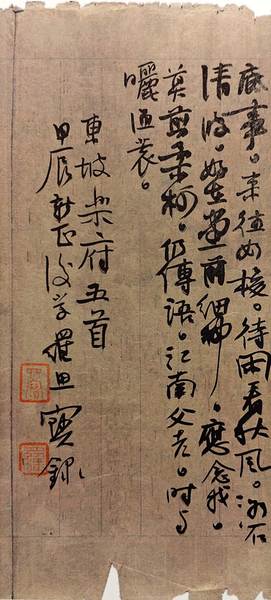 底事。来往如梭。待閑看秋风。洛水
清波。好在堂前細柳。應念我。
莫剪柔柯。仍傳語。江南父老。时与
曬漁蓑。
東坡樂府五首
甲辰新正後学羅旦寶録